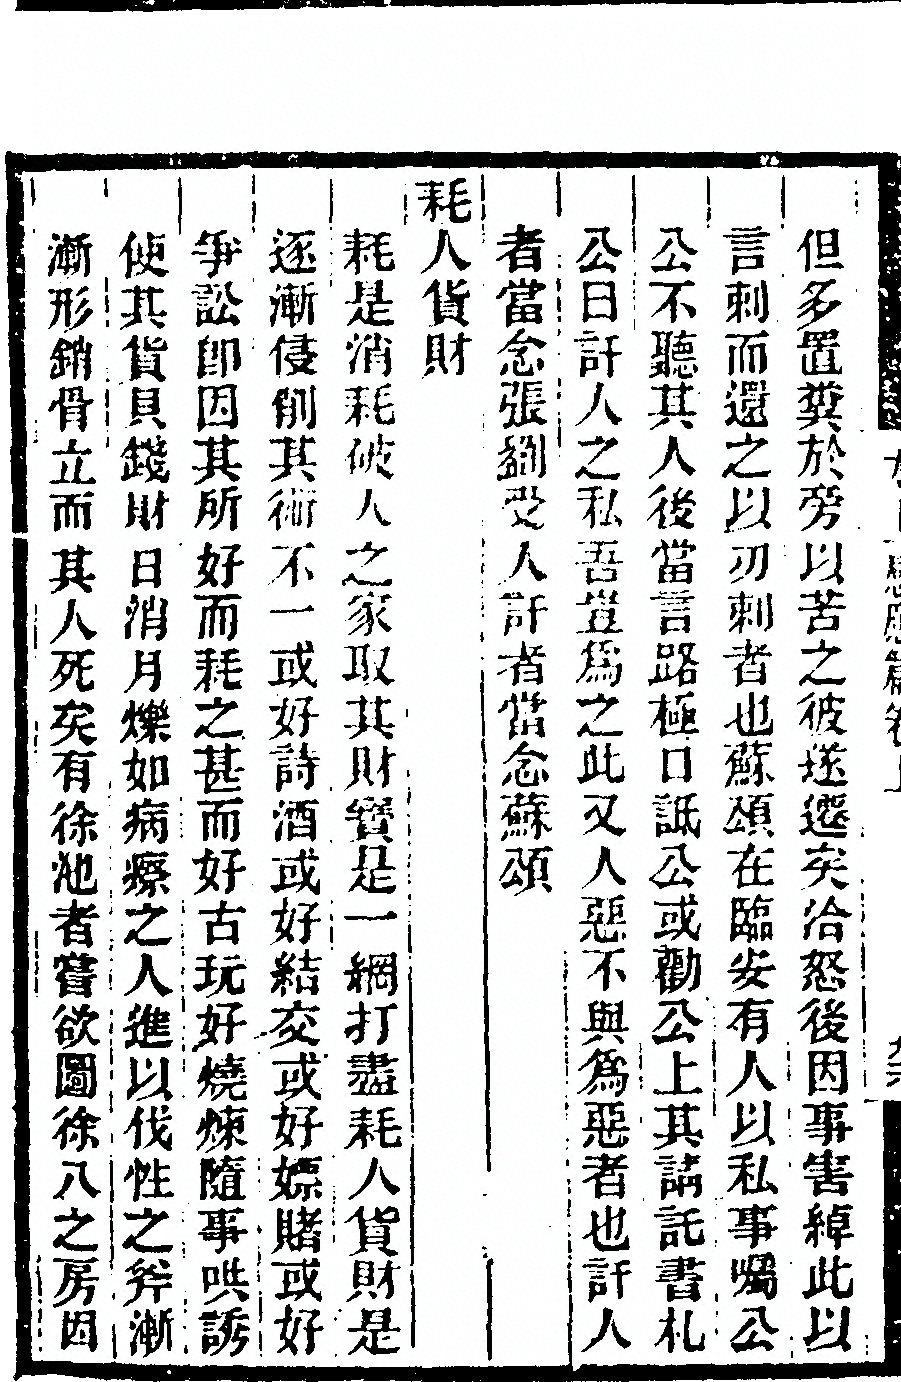 但多置糞於旁以苦之彼遂遷矣洽怒後因事害綽此以
言刺而還之以刃刺者也蘇頌在臨安有人以私事囑公
公不聽其人後當言路極口詆公或勸公上其請託書札
公曰訐人之私吾豈爲之此又人惡不與爲惡者也訐人
者當念張綱受人訐者當念蘇頌
耗人貨財
耗是消耗破人之家取其財寶是一網打盡耗人貨財是
逐漸侵削其術不一或好詩酒或好結交或好嫖賭或好
爭訟卽因其所好而耗之甚而好古玩好燒煉隨事哄誘
使其貨貝錢財日消月爍如病瘵之人進以伐性之斧漸
漸形銷骨立而其人死矣有徐池者嘗欲圖徐八之房因